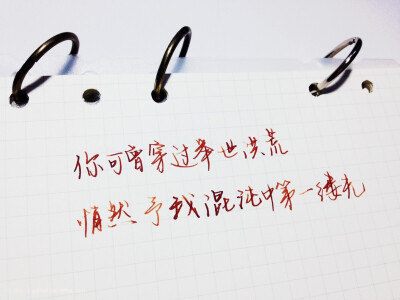 你可曾穿过举世洪荒
悄然予我混沌中第一缕光